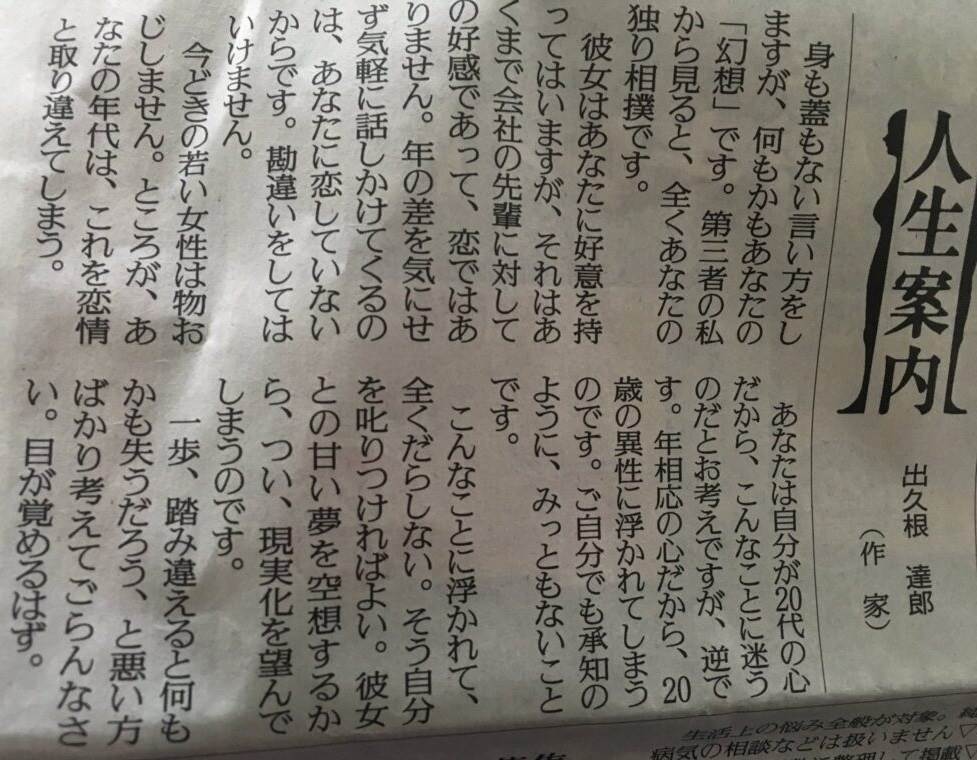 人生案内
出久根 達郎
(作 家)
身も蓋もない言い方をし
ますが、何もかもあなたの
「幻想」です。第三者の私
から見ると、全くあなたの
独り相撲です。
彼女はあなたに好意を持
ってはいますが、それはあ
くまで会社の先輩に対して
の好感であって、恋ではあ
りません。年の差を気にせ
ず気軽に話しかけてくるの
は、あなたに恋していない
からです。勘違いをしては
いけません。
今どきの若い女性は物お
じしません。ところが、あ
なたの年代は、これを恋情
と取り違えてしまう。
あなたは自分が20代の心
だから、こんなことに迷う
のだとお考えですが、逆で
す。年相応の心だから、20
歳の異性に浮かれてしまう
のです。ご自分でも承知の
ように、みっともないこと
です。
こんなことに浮かれて、
全くだらしない。そう自分
を叱りつければよい。彼女
との甘い夢を空想するか
ら、つい、現実化を望んで
しまうのです。
一歩、踏み違えると何も
かも失うだろう、と悪い方
ばかり考えてごらんなさ
い。目が覚めるはず。
生活上の悩み全般が対象。
病気の相談などは扱いません▽
整理して掲載▽